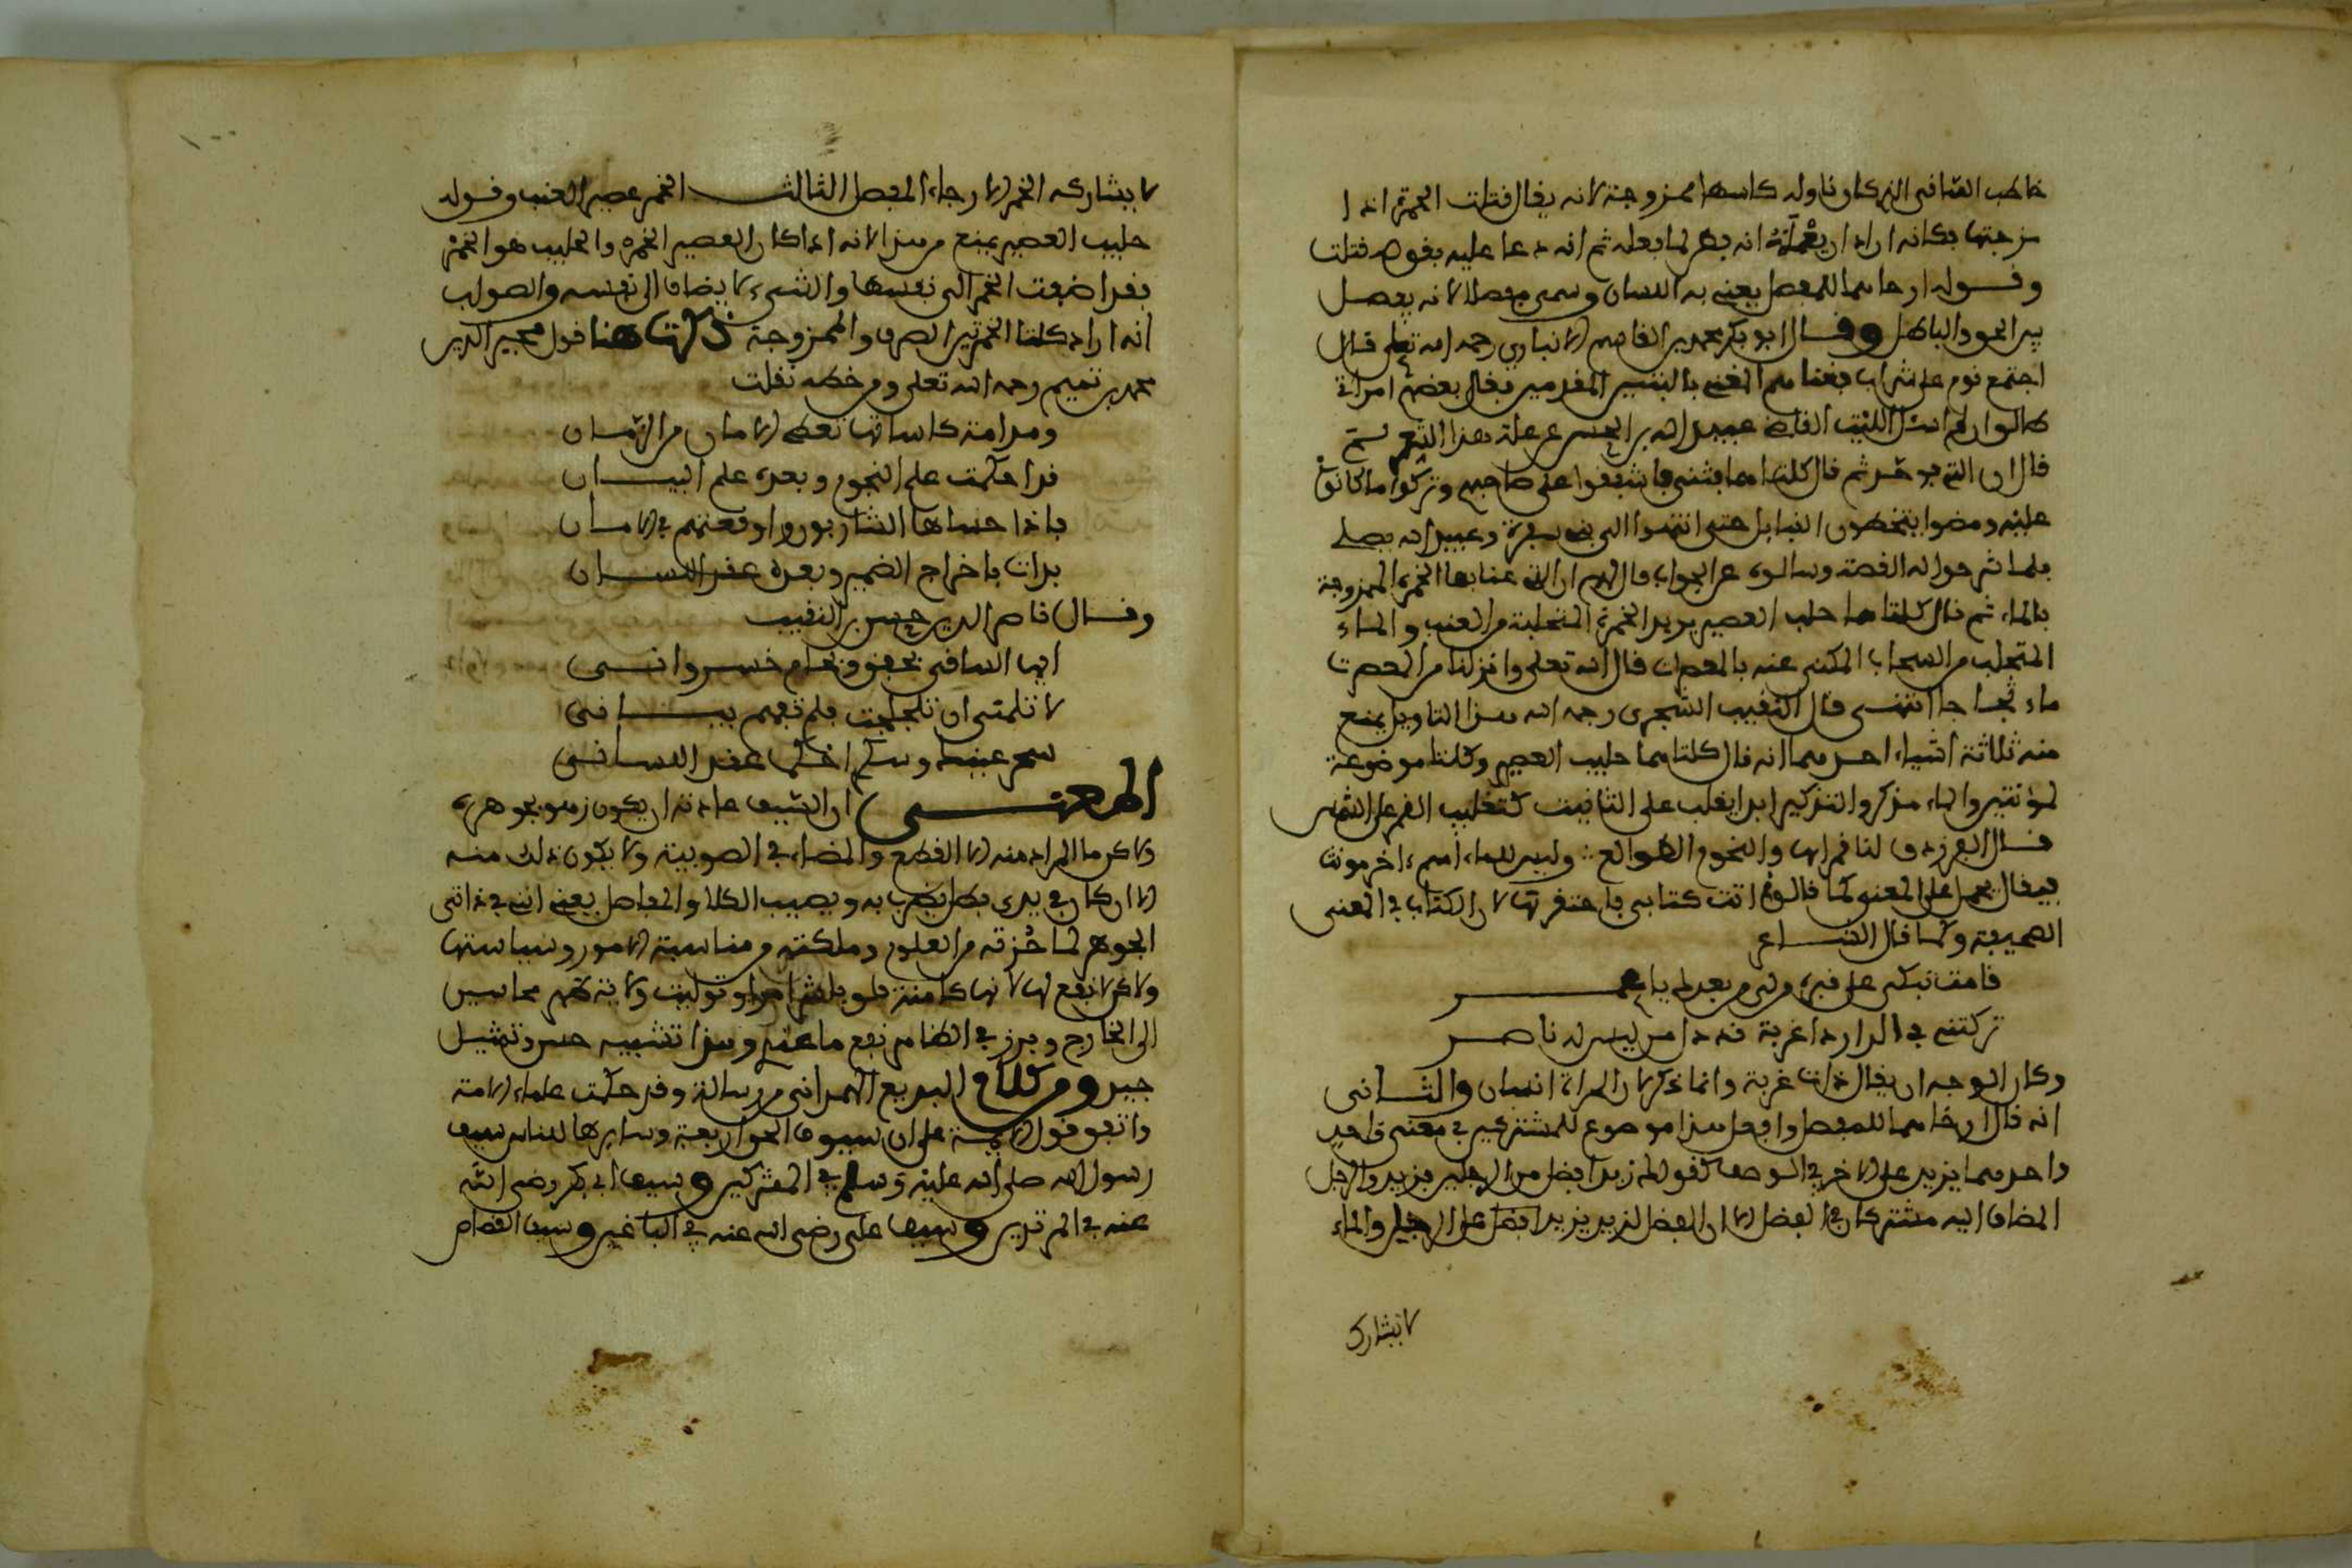 خاطب الساقي الذي كان ناوله كاسها ممزوجة لانه يقال قتلت الخمرة اذا
مزجتها فكانه اراد ان يعلمه انه فطن لما فعله ثم انه دعا عليه بقوله قتلت
وقوله ارخاهما للمفصل يعني به اللسان وسمي مفصلا لانه يفصل
بين الحق والباطل وقال ابو بكر محمد بن القاسم الانباري رحمه الله تعلى قال
اجتمع قوم على شراب فغناهم المغني بالبيتين المقدمين فقال بعضهم امراتي
طالق ان لم اسئل الليلة القاضي عبيد الله بن الحسن عن علة هذا الشعر لم
قال ان التي فوحد ثم قال كلتاهما فثنى فاشفقوا على صاحبهم وتركوا ما كانوا
عليه ومضوا يتخطون القبايل حتى انتهوا الى بني شقرة وعبيد الله يصلي
فلما شرحوا له القصة وسالوه عن الجواب قال لهم ان التي عنا بها الخمرة الممزوجة
بالماء ثم قال كلتاهما حلب العصير يريد الخمرة المتحلبة من العنب والماء
المتحلب من السحاب المكنى عنه بالمعصرات قال الله تعلى وانزلنا من المعصرت
ماء ثجاجا انتهى قال النقيب الشجري رحمه الله هذا التاويل يمنع
منه ثلاثة اشياء احدهما انه قال كلتاهما حليب العصير وكلتا موضوعة
لمؤنثين والماء مذكر والتذكير ابدا يغلب على التانيث كتغليب القمر على الشمس
قال الفرزدق لنا قمراها والنجوم الطوالع :: وليس للماء اسم اخر مونث
فيقال يحمل على المعنى كما قالوا اتت كتابي فاحتقرتها لان الكتاب في المعنى
الصحيفة وكما قال الشاعر
قامت تبكي على قبره من لي من بعدك يا عامر
تركتني في الدار ذا غربة قد ذل من ليس له ناصر
وكان الوجه ان يقال ذات غربة وانما ذكر لان المراة انسان والثاني
انه قال ارخاهما للمفصل وافعل هذا موضوع للمشتركين في معنى واحد
واحدهما يزيد على الاخر في الوصف كقولك زيد افضل من الرجلين فزيد والرجل
المضاف اليه مشتركان في الفضل الا ان الفضل لزيد يزيد افضل على الرجل والماء
لا يشارك
لا يشاركه الخمر الارخاء المفصل الثالث الخمر عصير العنب وقوله
حليب العصير يمنع من هذا لانه اذا كان العصير الخمرة والحليب هو الخمر
فقد اضفت الخمر الى نفسها والشيء لا يضاف الى نفسه والصواب
انه اراد كلتا الخمرتين الصرف والممزوجة ذكرت هنا قول مجير الدين
محمد بن تميم رحمه الله تعلى ومن خطه نقلت
ومدامة كاساتها تعطي الامان من الزمان
قد احكمت علم النجوم وبعده علم البيان
فاذا حساها الشاربون واوقعتهم في الامان
بدات باخراج الضمير وبعده عقد اللسان
وقال ناصر الدين حسن بن النقيب
ايها الساقي بحق وبجام خسرواني
لا تلمني ان تلجلجت فلم تفهم بياني
سحر عينيك وسكر احكما عقد اللساني
المعنى ان السيف عادته ان يكون زهوه بجوهره
ولاكن ما المراد منه الا القطع والمضاء في الضريبة ولا يكون ذلك منه
الا ان كان في يدي بطل يضرب به ويصيب الكلا والمفاصل يعني انني في ذاتي
الجوهر لما حزته من العلوم وملكته من مناسبة الامور وسياستها
ولاكن لا نفع لها لانها كامنة فلو باشرت امرا وتوليت ولاية ظهر محاسن
الى الخارج وبرز في الظاهر نفع ما عندي وهذا تشبيه حسن وتمثيل
جيد ومن كلام البديع الهمداني من رسالة وقد حكمت علماء الامة
واتفق قول الايمة على ان سيوف الحق اربعة وسايرها للناس سيف
رسول الله صلى الله عليه وسلم في المشركين وسيف ابي بكر رضي الله
عنه في المرتدين وسيف علي رضي الله عنه في الباغين وسيف القصاص